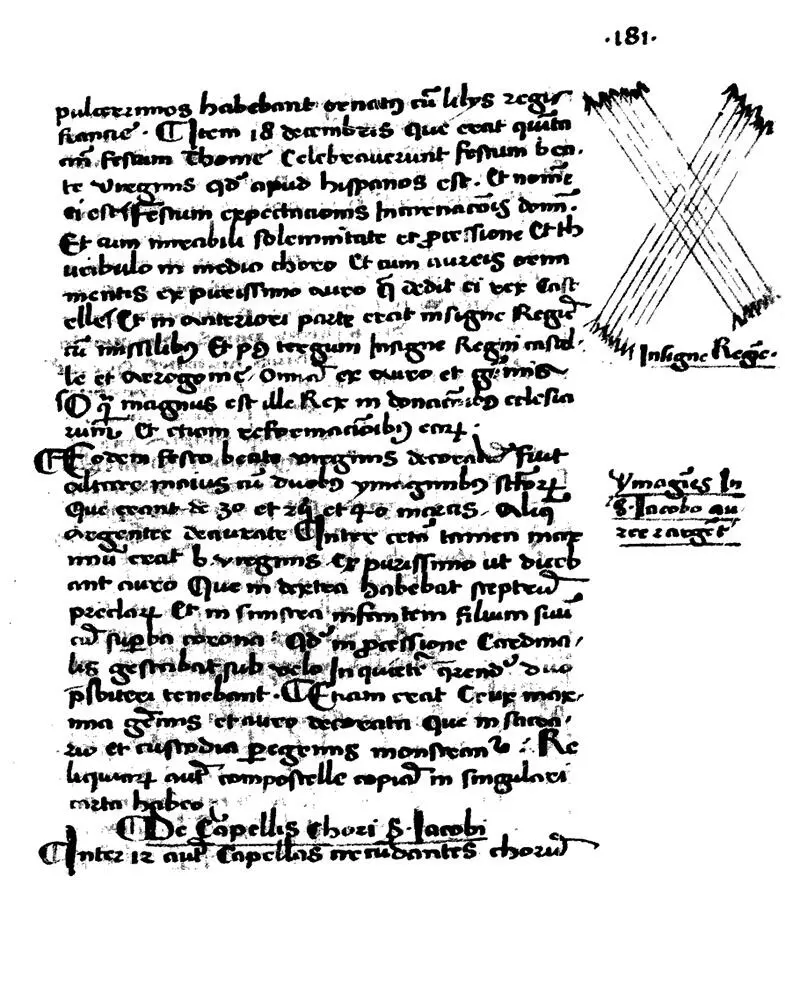 ·181·
pulcerrimos habebant ornatū cū lilys regis
francie · Item 18 decembris que erat quīta
añ festum Thome Celebraverunt festum bea-
te virginis qd' apud hispanos est · Et nomē
ei est festum expectacionis Incarnacōis domī·
Et cum mirabili solemnitate et pcessione Et th
uribulo in medio choro Et cum aureis orna
mentis ex purissimo auro q̄ dedit ei rex Cast
elle Et in anteriori parte erat insigne Regū
cū missilibꝫ Et pꝰ tergum Insigne Regni castel-
le et Arrogonie ex auro et gēmis
O q̄ magnus est ille Rex in donacōibꝫ eclesia
rum Et etiam reformaciōibꝫ earꝝ·
Eodem festo beate virginis decoratū fuit
altare maius cū duobꝫ ymaginibꝫ sctorꝝ
Que erant de 30 et et 40 marcis · Aliq̄
argentee deaurate Inter cetā tamen max
imū erat b. virginis ex purissimo ut dueb
ant auro Que in dextra habebat sceptrū
preclarꝝ Et in sinistra infantem filium suū
cū supba corona · Qd' in pcessione Cardina-
lis gestabat sub velo duo
psbiteri tenebant · Etiam erat Crux max-
ima gēmis et auro decorata Que in sacra-
rio et custodia peregrinis monstran · Re
liquiarꝝ aut' compostelle copiā in singulari
carta habeo
De Capellis chori S· Iacobi
Inter 12 aut' Capellas circūdantes chorū
Insigne Regē·
ymagīes In
S· Iacobo au-
ree et argēt'